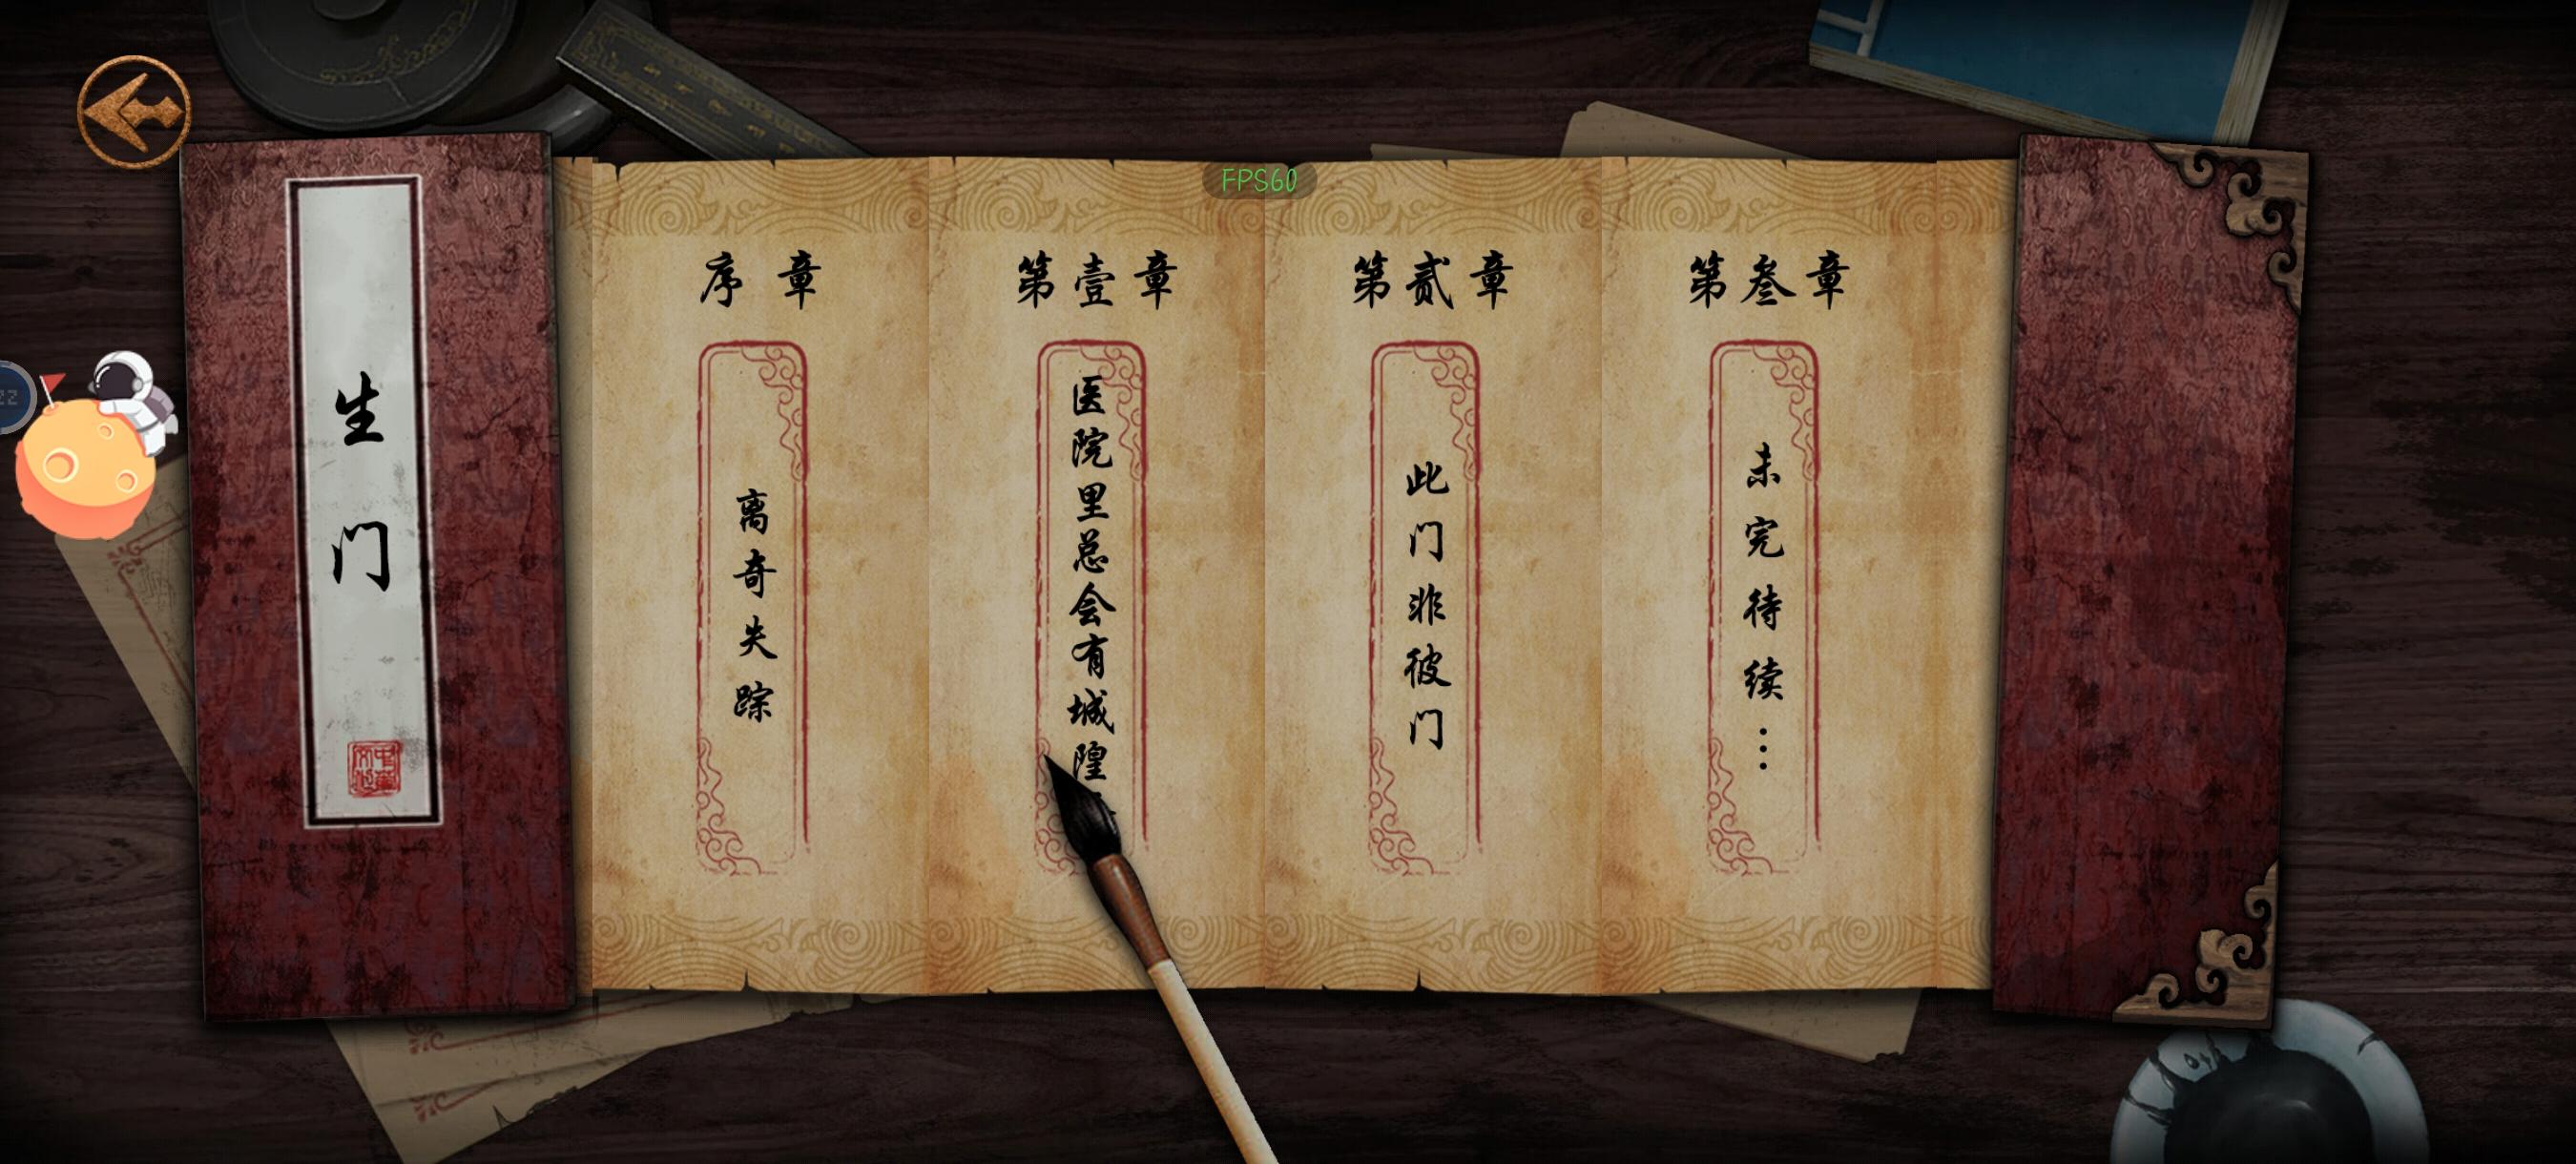 生门
FPS60
序章
离奇失踪
第壹章
医院里总会有城隍
第贰章
此门非彼门
第叁章
未完待续…